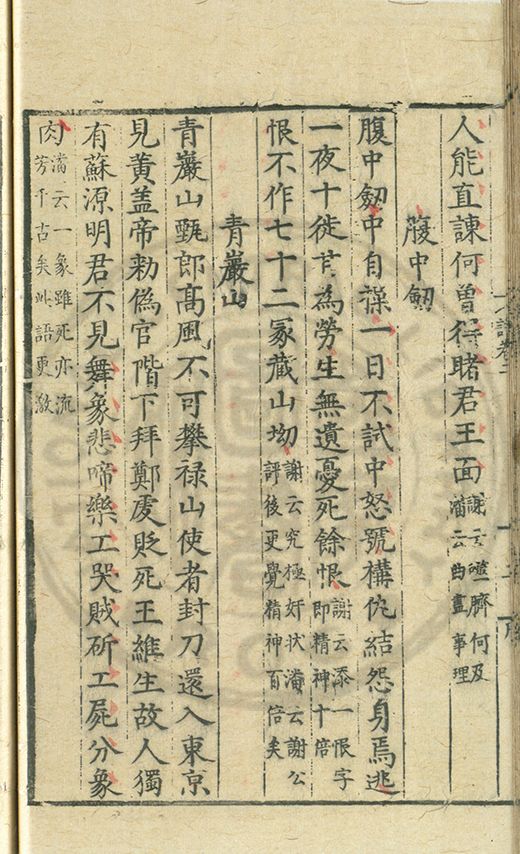 人能直諫何曾得睹君王面謝云噬臍何及潘云曲盡事理
腹中劒
腹中劒中自操一日不試中怒號構仇結怨身焉逃
一夜十徙甘為勞生無遺憂死餘恨謝云添一恨字即精神十倍
恨不作七十二冢藏山坳謝云究極奸狀潘云謝公評後更覺精神百倍矣
青巖山
青巖山甄郎高風不可攀祿山使者封刀還入東京
見黃蓋帝勑偽官階下拜鄭虔貶死王維生故人獨
有蘇源明君不見舞象悲啼樂工哭賊斫工屍分象
肉潘云一象雖死亦流芳千古矣此語更激